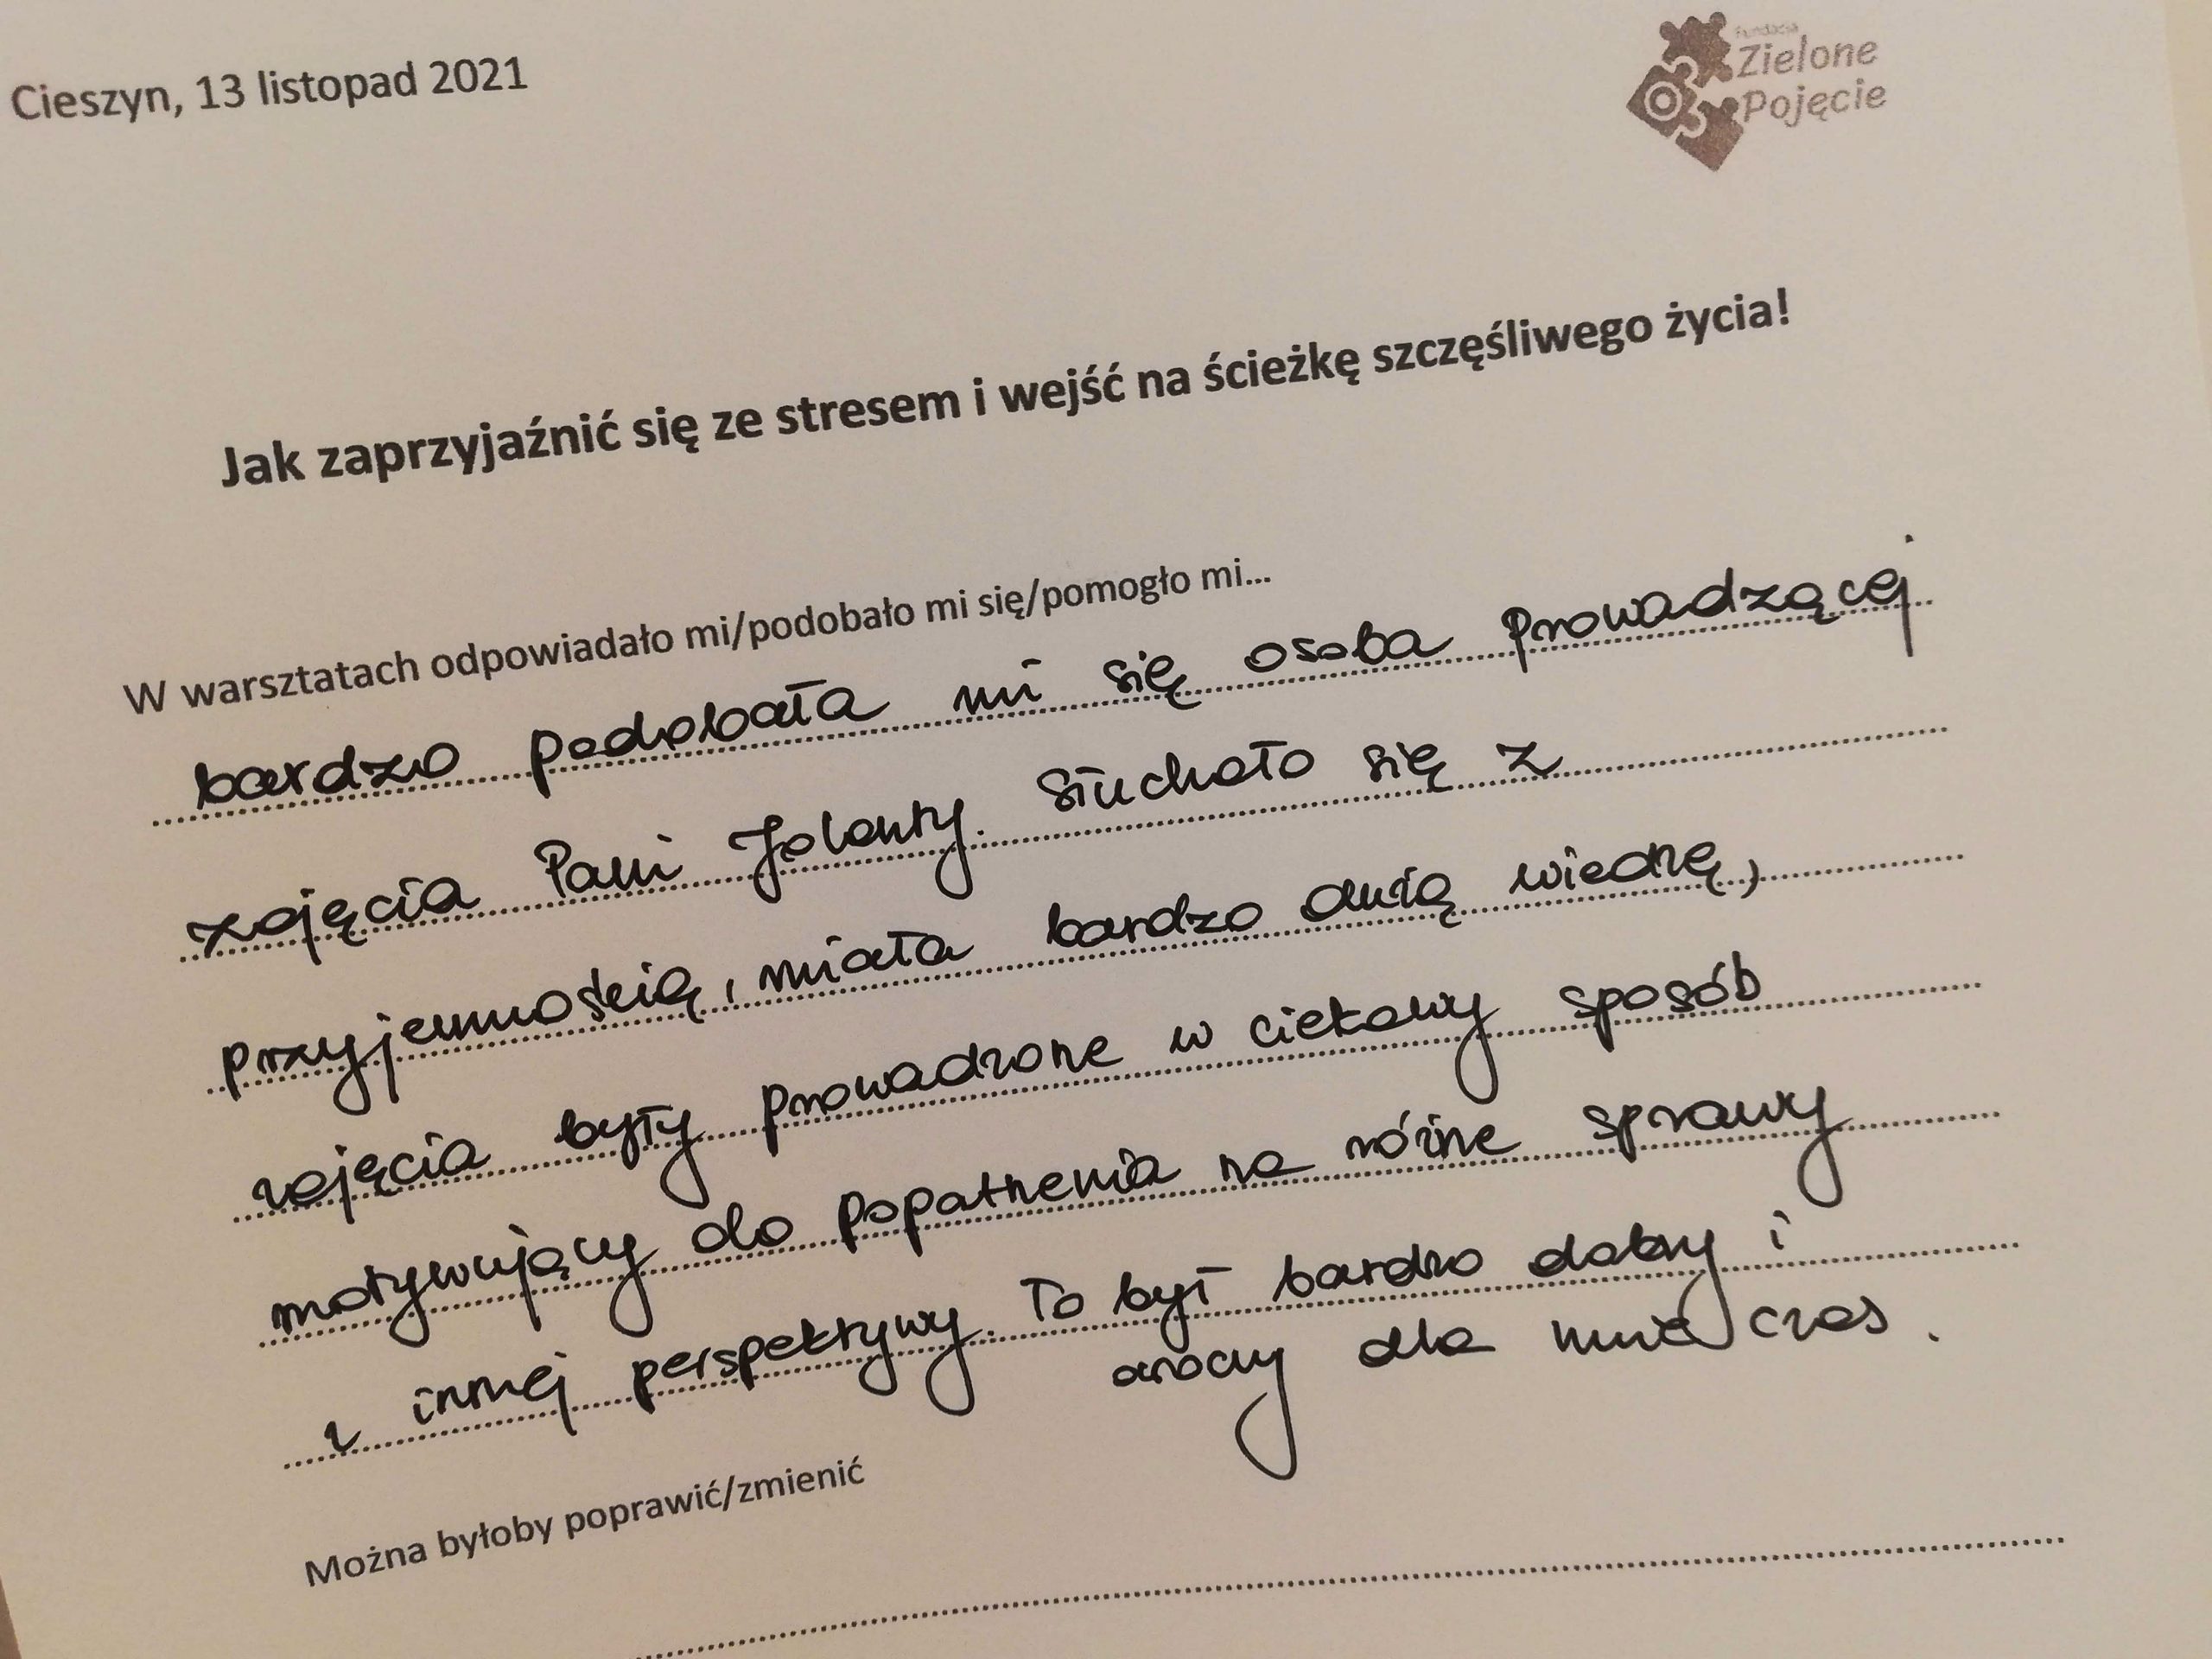 Cieszyn, 13 listopad 2021
Fundacja
Zielone
Pojęcie
Jak zaprzyjaźnić się ze stresem i wejść na ścieżkę szczęśliwego życia!
W warsztatach odpowiadało mi/podobało mi się/pomogło mi...
bardzo podobała mi się osoba prowadzącej
zajęcia Pani Jolanty. Słuchało się z
przyjemnością, miała bardzo dużą wiedzę,
zajęcia były prowadzone w ciekawy sposób
motywujący do popatrzenia na różne sprawy
z innej perspektywy. To był bardzo dobry i
dla mnie czas.
Można byłoby poprawić/zmienić